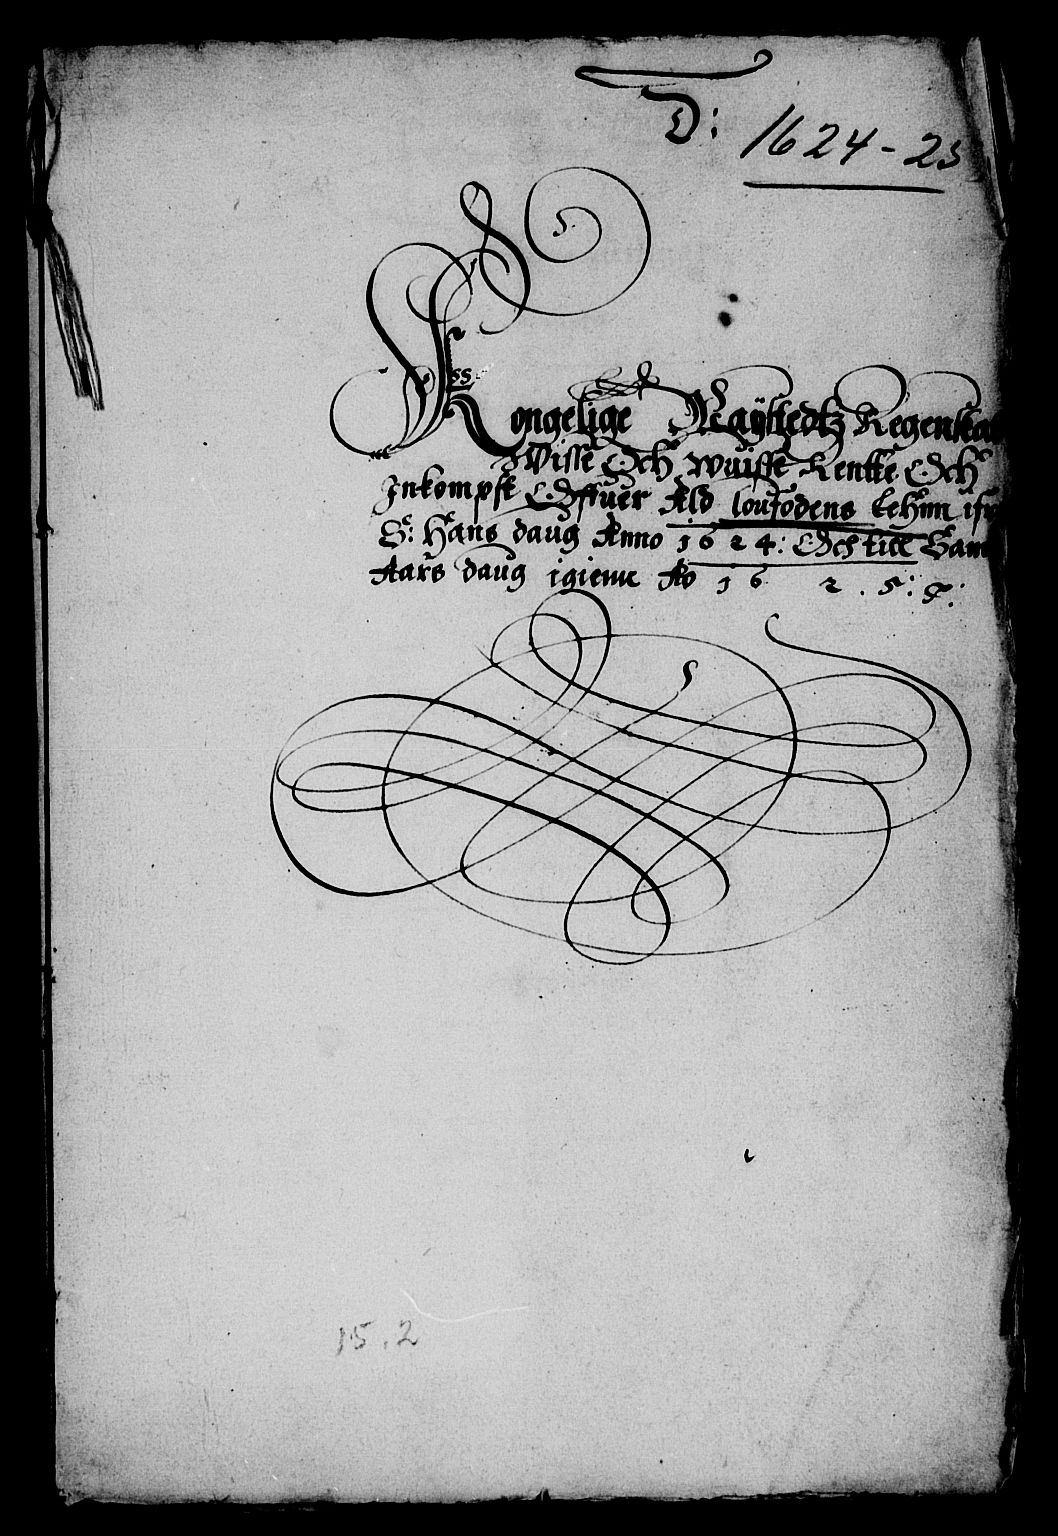 D: 1624-25
Kongelige Maÿstedtz Regenska
Wisse Och wuisse Rentte Och
Inkompst Offuer Ald loufodens Lehnn ifr
S: Hans daug Anno 1624: Och till Sam
Aars daug igienn Ao 1625:
15.2